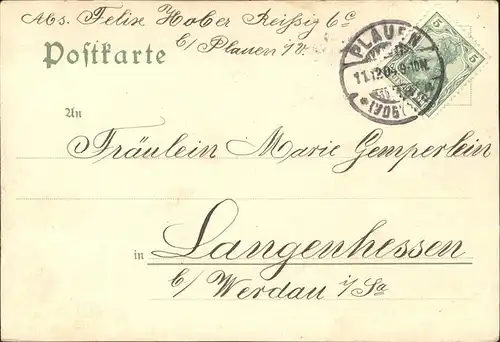 Abs. Felix Hober Reißig b/c
b/ Plauen i/V.
Postkarte
PLAUEN
11.12.05 9-10N.
* (Vogtl.)
5 5
An
Fräulein Marie Gemperlein
in Langenhessen
b/ Werdau i/Sa